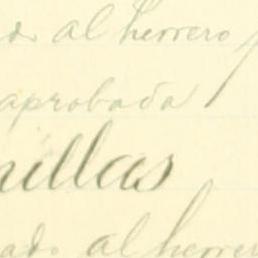 al herrero
aprobada
illas
al herrer